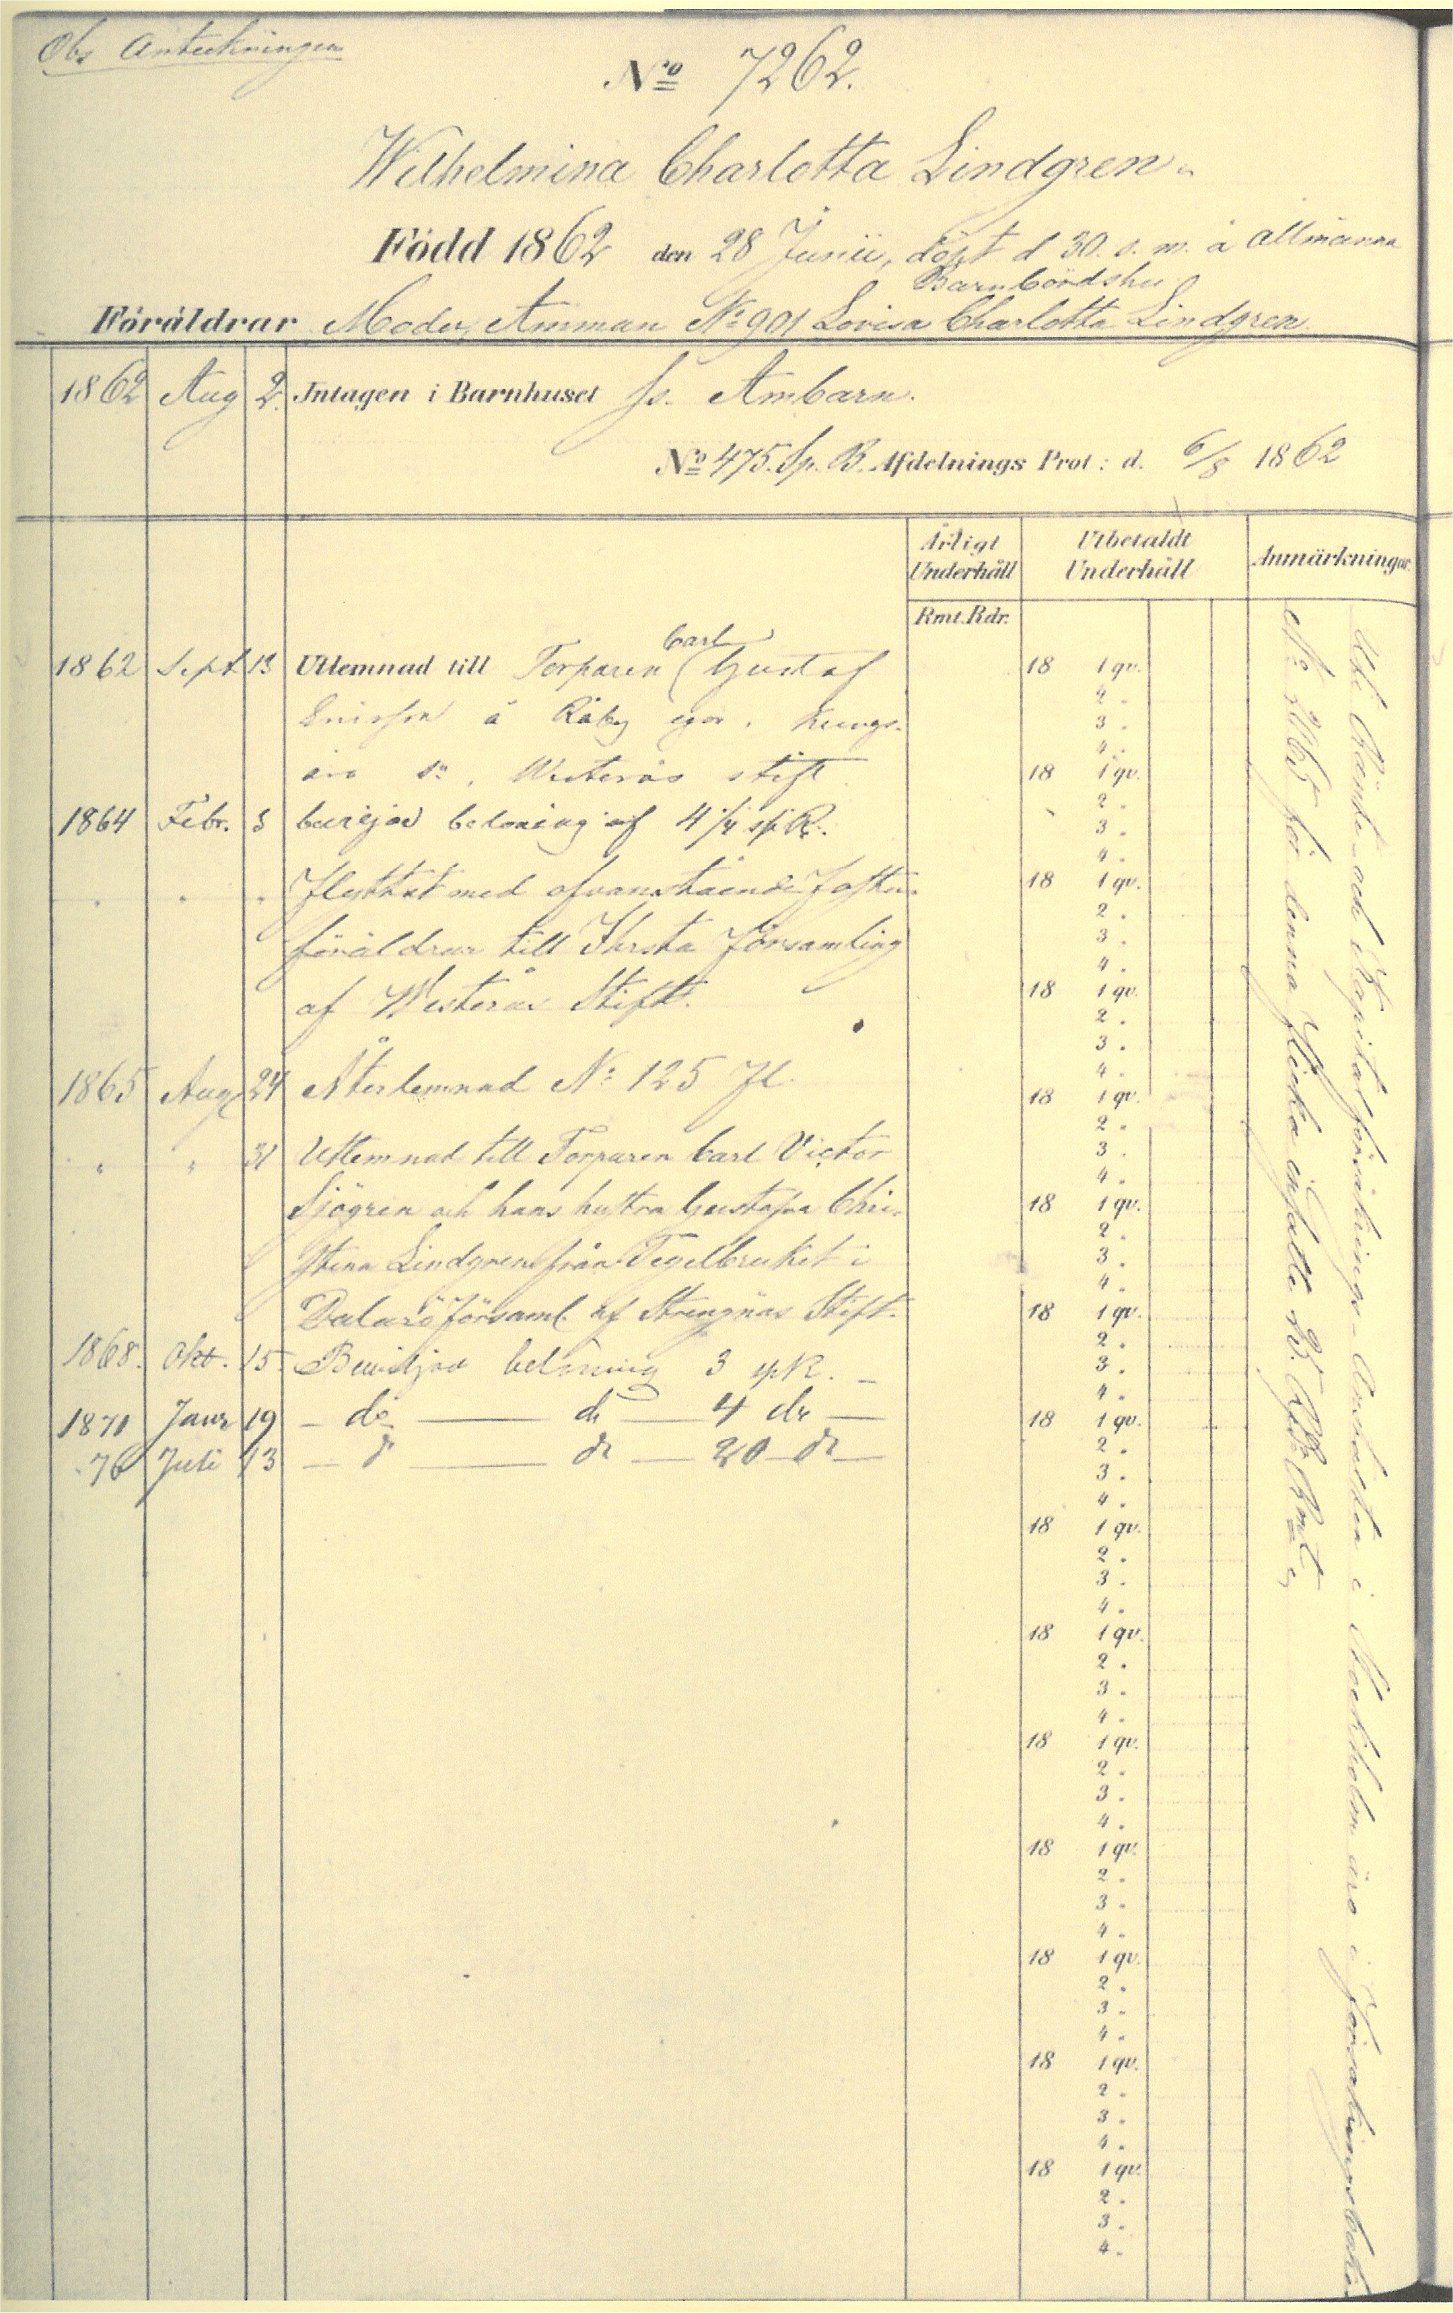 Obs Anteckningen
No 7262.
Wilhelmina Charlotta Lindgren.
Född 1862 den 28 Junii, döpt d 30. s. m. å Allmänna
Barnbördshu
Föräldrar Moder, Amman No 901 Lovisa Charlotta Lindgren
1862 Aug 2. Intagen i Barnhuset ss. Ambarn.
No 475. Sp. B. Afdelnings Prot: d. 6/8 1862
Årligt Underhåll
Utbetaldt Underhåll
Anmärkningar
Rmt. Rdr.
1862 Sept 13 Utlemnad till Torparen Carl Gustaf
å Råby egor, Kungs-
sn, Westerås stift
1864 Febr. 3 beviljad belöning af 4
" " " Flyttat med ofvanstående foster-
föräldrar till församling
af Westerås Stift.
1865 Aug 24 Återlemnad No 125 Fl.
" " 31 Utlemnad till Torparen Carl Victor
Sjögren och hans hustru Gustafva Chri-
stina Lindgren från Tegelbruket i
Dalarö församl. af Strengnäs Stift.
1868. Okt. 15 Beviljad belöning 3 spR. –
1871 Janr 19 – do — do — 4 do —
76 Juli 13 – do — do — 20 do —
18 1 qv.
2 "
3 "
4 "
18 1 qv.
2 "
3 "
4 "
18 1 qv.
2 "
3 "
4 "
18 1 qv.
2 "
3 "
4 "
18 1 qv.
2 "
3 "
4 "
18 1 qv.
2 "
3 "
4 "
18 1 qv.
2 "
3 "
4 "
18 1 qv.
2 "
3 "
4 "
18 1 qv.
2 "
3 "
4 "
18 1 qv.
2 "
3 "
4 "
18 1 qv.
2 "
3 "
4 "
18 1 qv.
2 "
3 "
4 "
18 1 qv.
2 "
3 "
4 "
18 1 qv.
2 "
3 "
4 "
18 1 qv.
2 "
3 "
4 "
Uti Ränte- och Kapitalförsäkrings-Anstalten i Stockholm äro i Försäkringsboken
No för denna flicka insatte 25. Rdr Rmt